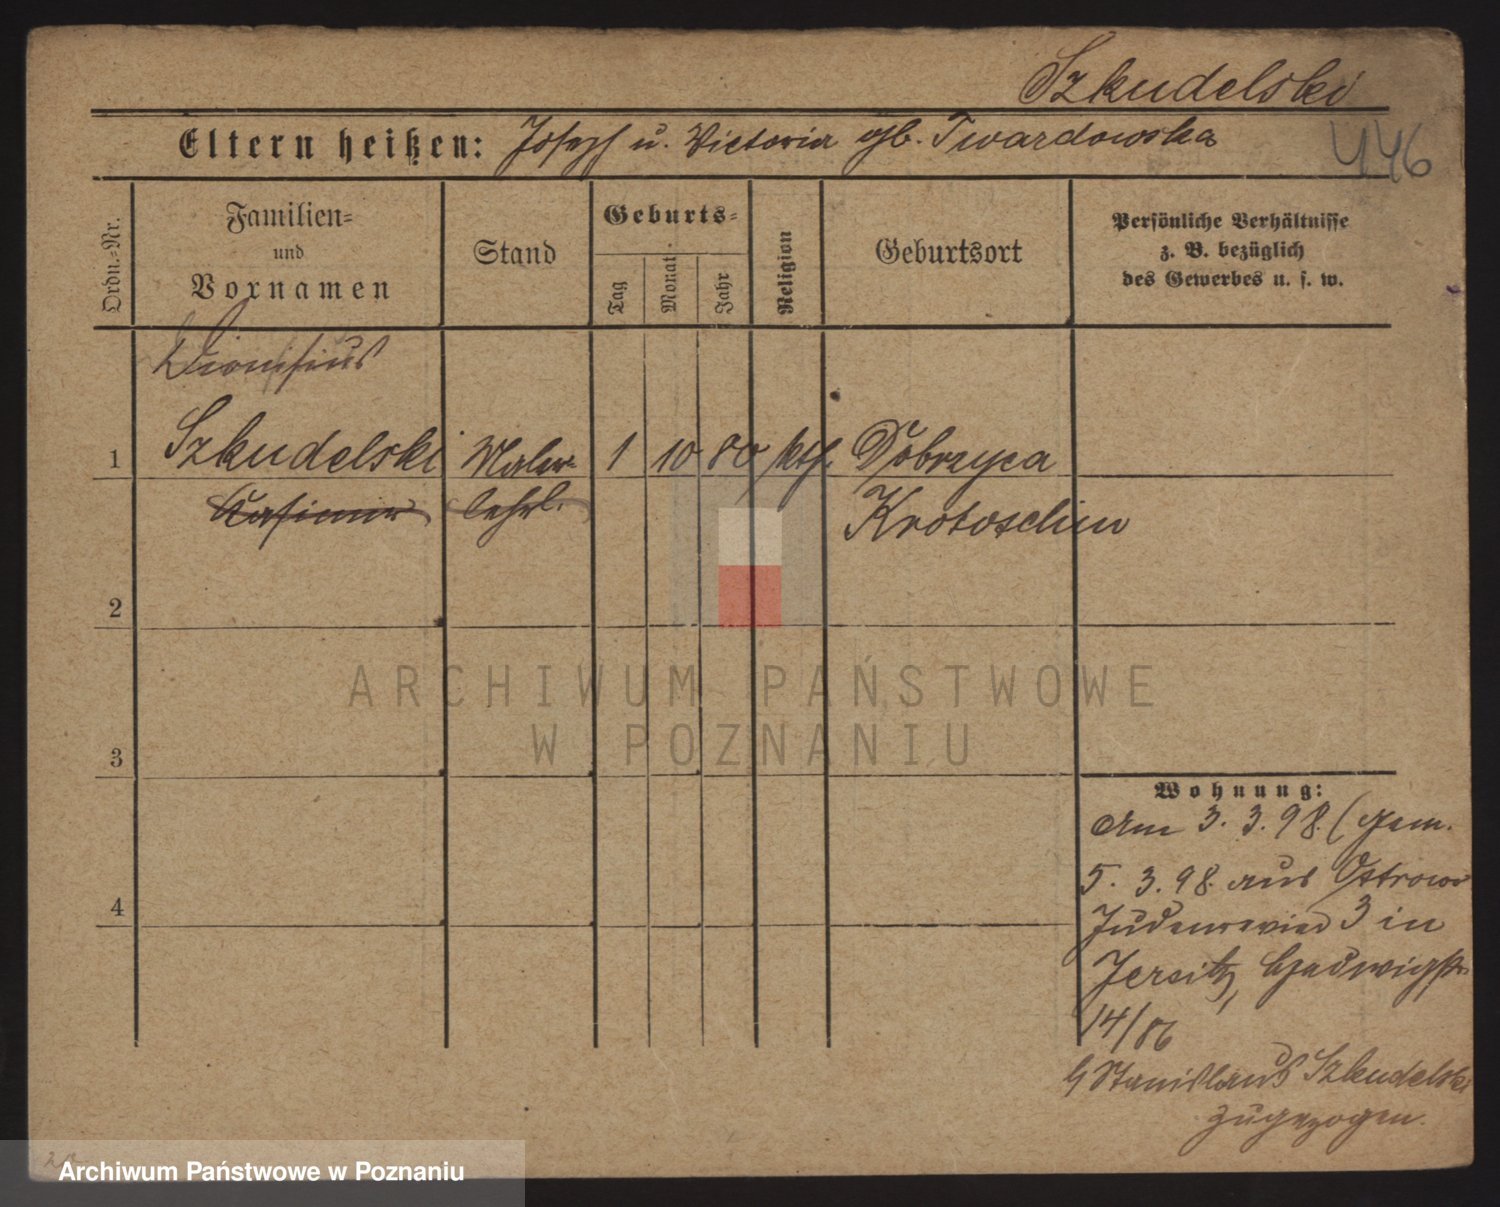 Szkudelski
Eltern heißen: Joseph u. Victoria gb. Twardowska
446
Ordn.-Nr.
Familien-
und
Vornamen
Stand
Geburts-
Tag
Monat
Jahr
Religion
Geburtsort
Persönliche Verhältnisse
z. B. bezüglich
des Gewerbes u. s. w.
Dionisius
1 Szkudelski Maler- 1 10 80 kth. Dobrzyca
Casimir lehrl. Krotoschin
2
3
4
ARCHIWUM PAŃSTWOWE
W POZNANIU
Wohnung:
Am 3. 3. 98. (gem.
5. 3. 98. aus Ostrowo
Judenrevier 3 in
Jersitz, Hedwigstr.
14/
Stanislaus Szkudelski
zugezogen.
Archiwum Państwowe w Poznaniu